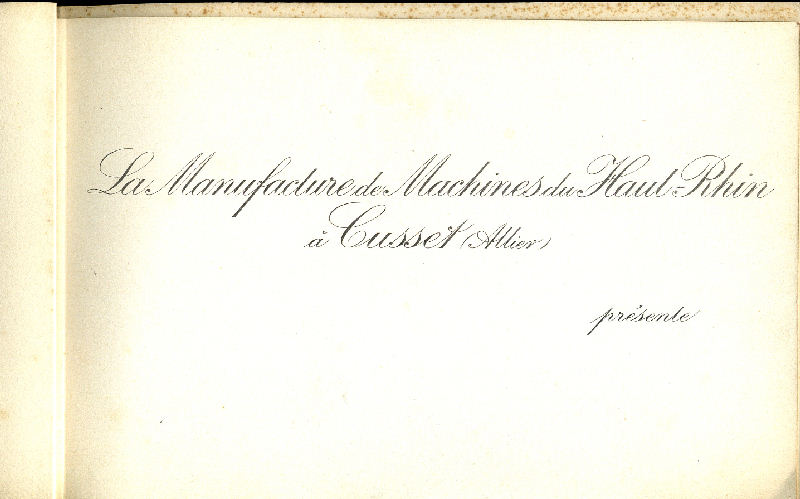 La Manufacture de Machines du Haut-Rhin
à Cusset (Allier)
présente